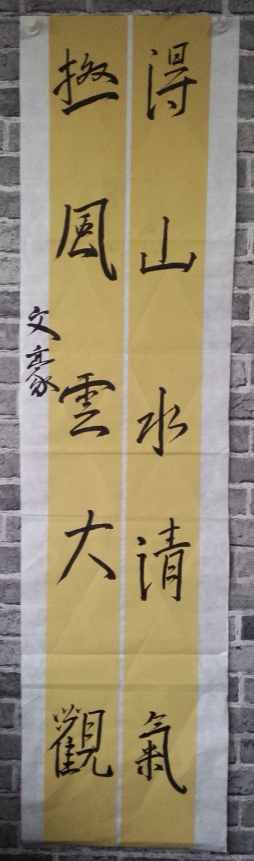 得山水清氣
極風雲大觀
文豪